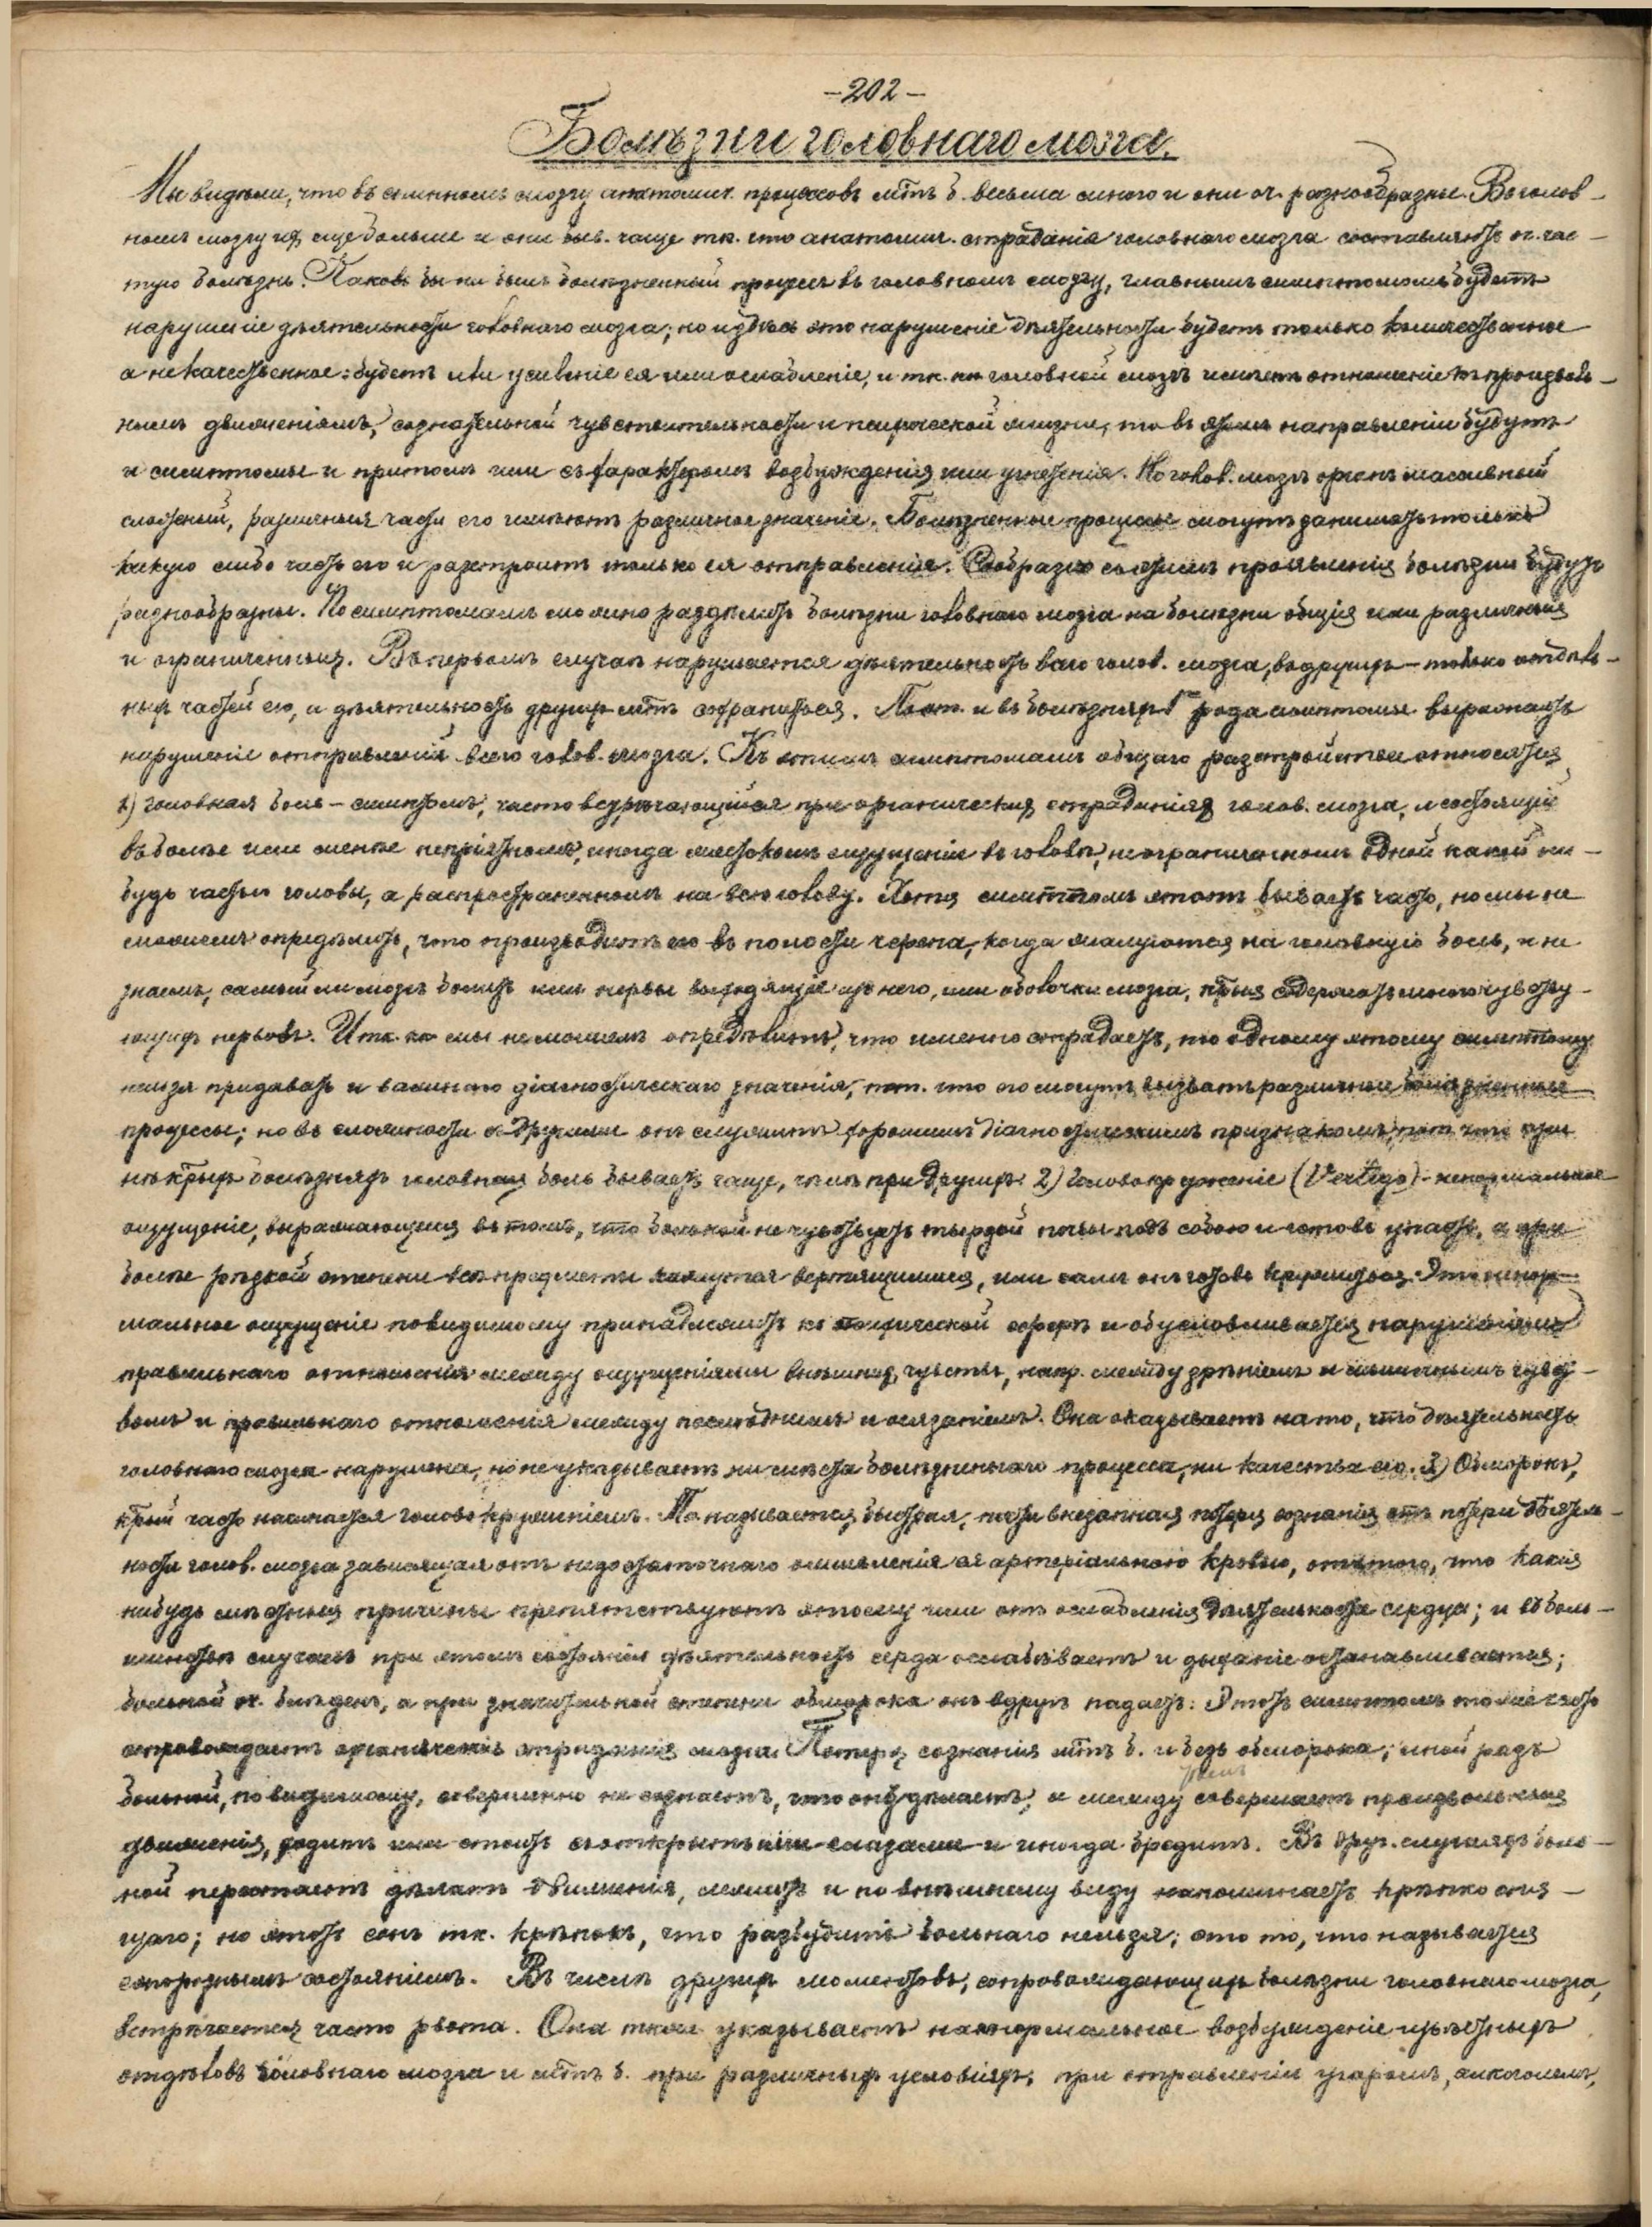 -202-
Болѣзни головнаго мозга.
Мы видѣли, что въ спинномъ мозгу анатомич. процессовъ м̃тъ б. весьма много и они оч. разнообразны. Въ голов-
номъ мозгу их еще больше и они быв. чаще тк. что анатомич. страданія головного мозга составляютъ оч. час-
тую болѣзнь. Каковъ бы ни былъ болѣзненный процессъ въ головномъ мозгу, главнымъ симптомомъ будетъ
нарушеніе дѣятельности головного мозга; но и здѣсь это нарушеніе дѣятельности будетъ только количественное
а не качественное: будетъ или усиленіе ея или ослабленіе, и тк. кк головной мозгъ имѣетъ отношеніе къ произволь-
нымъ движеніямъ, сознательной чувствительности и психической жизни, то въ этомъ направленіи будутъ
и симптомы и притомъ или съ характеромъ возбужденія или угнетенія. Но голов. мозгъ органъ массивный
сложный, различныя части его имѣютъ различное значеніе. Болѣзненные процессы могутъ занимать только
какую либо часть его и разстроить только ея отправленія. Сообразно съ этимъ проявленія болѣзни будутъ
разнообразны. По симптомамъ можно раздѣлить болѣзни головного мозга на болѣзни общія или различныя
и ограниченныя. Въ первомъ случаѣ нарушается дѣятельность всего голов. мозга, въ другихъ - только отдѣль-
ныхъ частей его, а дѣятельность другихъ м̃тъ сохраниться. Пот. и въ болѣзняхъ рода симптомы выражаютъ
нарушеніе отправленій всего голов. мозга. Къ этимъ симптомамъ общаго разстройства относятся
1) головная боль - симптомъ, часто встрѣчающійся при органическихъ страданіях голов. мозга, и состоящій
въ болѣе или менѣе непріятномъ, иногда жестокомъ ощущеніи въ головѣ, неограниченномъ одной какой ни-
будь частью головы, а распространенномъ на всю голову. Хотя симптомъ этотъ бываетъ часто, но мы не
можемъ опредѣлить, что производитъ его въ полости черепа, когда жалуются на головную боль, и не
знаемъ, самый ли мозгъ болитъ или нервы выходящіе изъ него, или оболочки мозга, к̃рыя содержатъ много чувству-
ющихъ нервовъ. И тк. кк мы не можемъ опредѣлить, что именно страдаетъ, то одному этому симптому
нельзя придавать и важнаго діагностическаго значенія, пот. что его могутъ вызвать различные болѣзненные
процессы; но въ сложности съ другими онъ служитъ хорошимъ діагностическимъ признакомъ, пот что при
нѣк̃рыхъ болѣзняхъ головная боль бываетъ чаще, чѣмъ при другихъ. 2) Головокруженіе (Vertigo) - ненормальное
ощущеніе, выражающееся въ томъ, что больной не чувствуетъ твердой почвы подъ собою и готовъ упасть, а при
болѣе рѣзкой степени всѣ предметы кажутся вертящимися, или самъ онъ готовъ кружиться. Это ненор-
мальное ощущеніе повидимому принадлежитъ къ психической сферѣ и обусловливается нарушеніемъ
правильнаго отношенія между ощущеніями внѣшнихъ чувствъ, напр. между зрѣніемъ и мышечнымъ чувст-
вомъ и правильнаго отношенія между послѣднимъ и осязаніемъ. Она указываетъ на то, что дѣятельность
головного мозга нарушена, но не указываетъ ни мѣста болѣзненнаго процесса, ни качества его. 3) Обморокъ,
к̃рый часто начинается головокруженіемъ. Такъ называется быстрая, почти внезапная потеря сознанія отъ потери дѣятель-
ности голов. мозга зависящая отъ недостаточнаго оживленія ея артеріальною кровью, оттого, что какія
нибудь мѣстныя причины препятствуютъ этому или отъ ослабленія дѣятельности сердца; и въ боль-
шинствѣ случаевъ при этомъ состояніи дѣятельность серда ослабѣваетъ и дыханіе останавливается;
больной оч. блѣденъ, а при значительной степени обморока онъ вдругъ падаетъ. Этотъ симптомъ тоже часто
сопровождаетъ органическія страданія мозга. Потеря сознанія м̃тъ б. и безъ обморока; иной разъ
больной, повидимому, совершенно не сознаетъ, что онъ дѣлаетъ, а между тѣмъ совершаетъ произвольныя
движенія, ходитъ или стоитъ съ открытыми глазами и иногда бредитъ. Въ друг. случаяхъ боль-
ной перестаетъ дѣлать движенія, лежитъ и по внѣшнему виду напоминаетъ крѣпко спя-
щаго; но этотъ сонъ тк. крѣпокъ, что разбудить больнаго нельзя; это то, что называется
сопорознымъ состояніемъ. Въ числѣ другихъ моментовъ, сопровождающихъ болѣзни головного мозга,
встрѣчается часто рвота. Она также указываетъ на ненормальное возбужденіе извѣстныхъ
отдѣловъ головнаго мозга и м̃тъ б. при различныхъ условіяхъ, при отравленіи угаромъ, алкоголемъ,